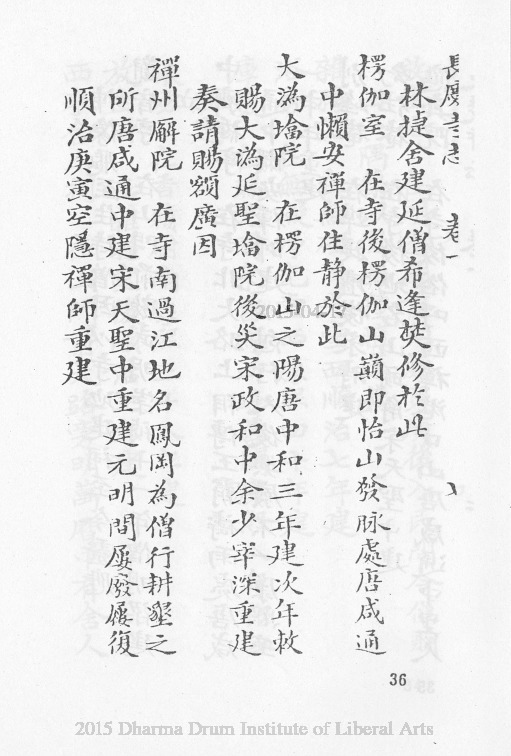 長慶寺志　卷一　八
林捷舍建延僧希逢焚修於此
楞伽室　在寺後楞伽山巔即怡山發脉處唐咸通
中懶安禪師住静於此
大溈塔院　在楞伽山之陽唐中和三年建次年敕
賜大溈延聖塔院後災宋政和中余少宰深重建
奏請賜額廣因
禪州廨院　在寺南過江地名鳳岡為僧行耕墾之
所唐咸通中建宋天聖中重建元明間屢廢屢復
順治庚寅空隱禪師重建
36
2015 Dharma Drum Institute of Liberal Arts